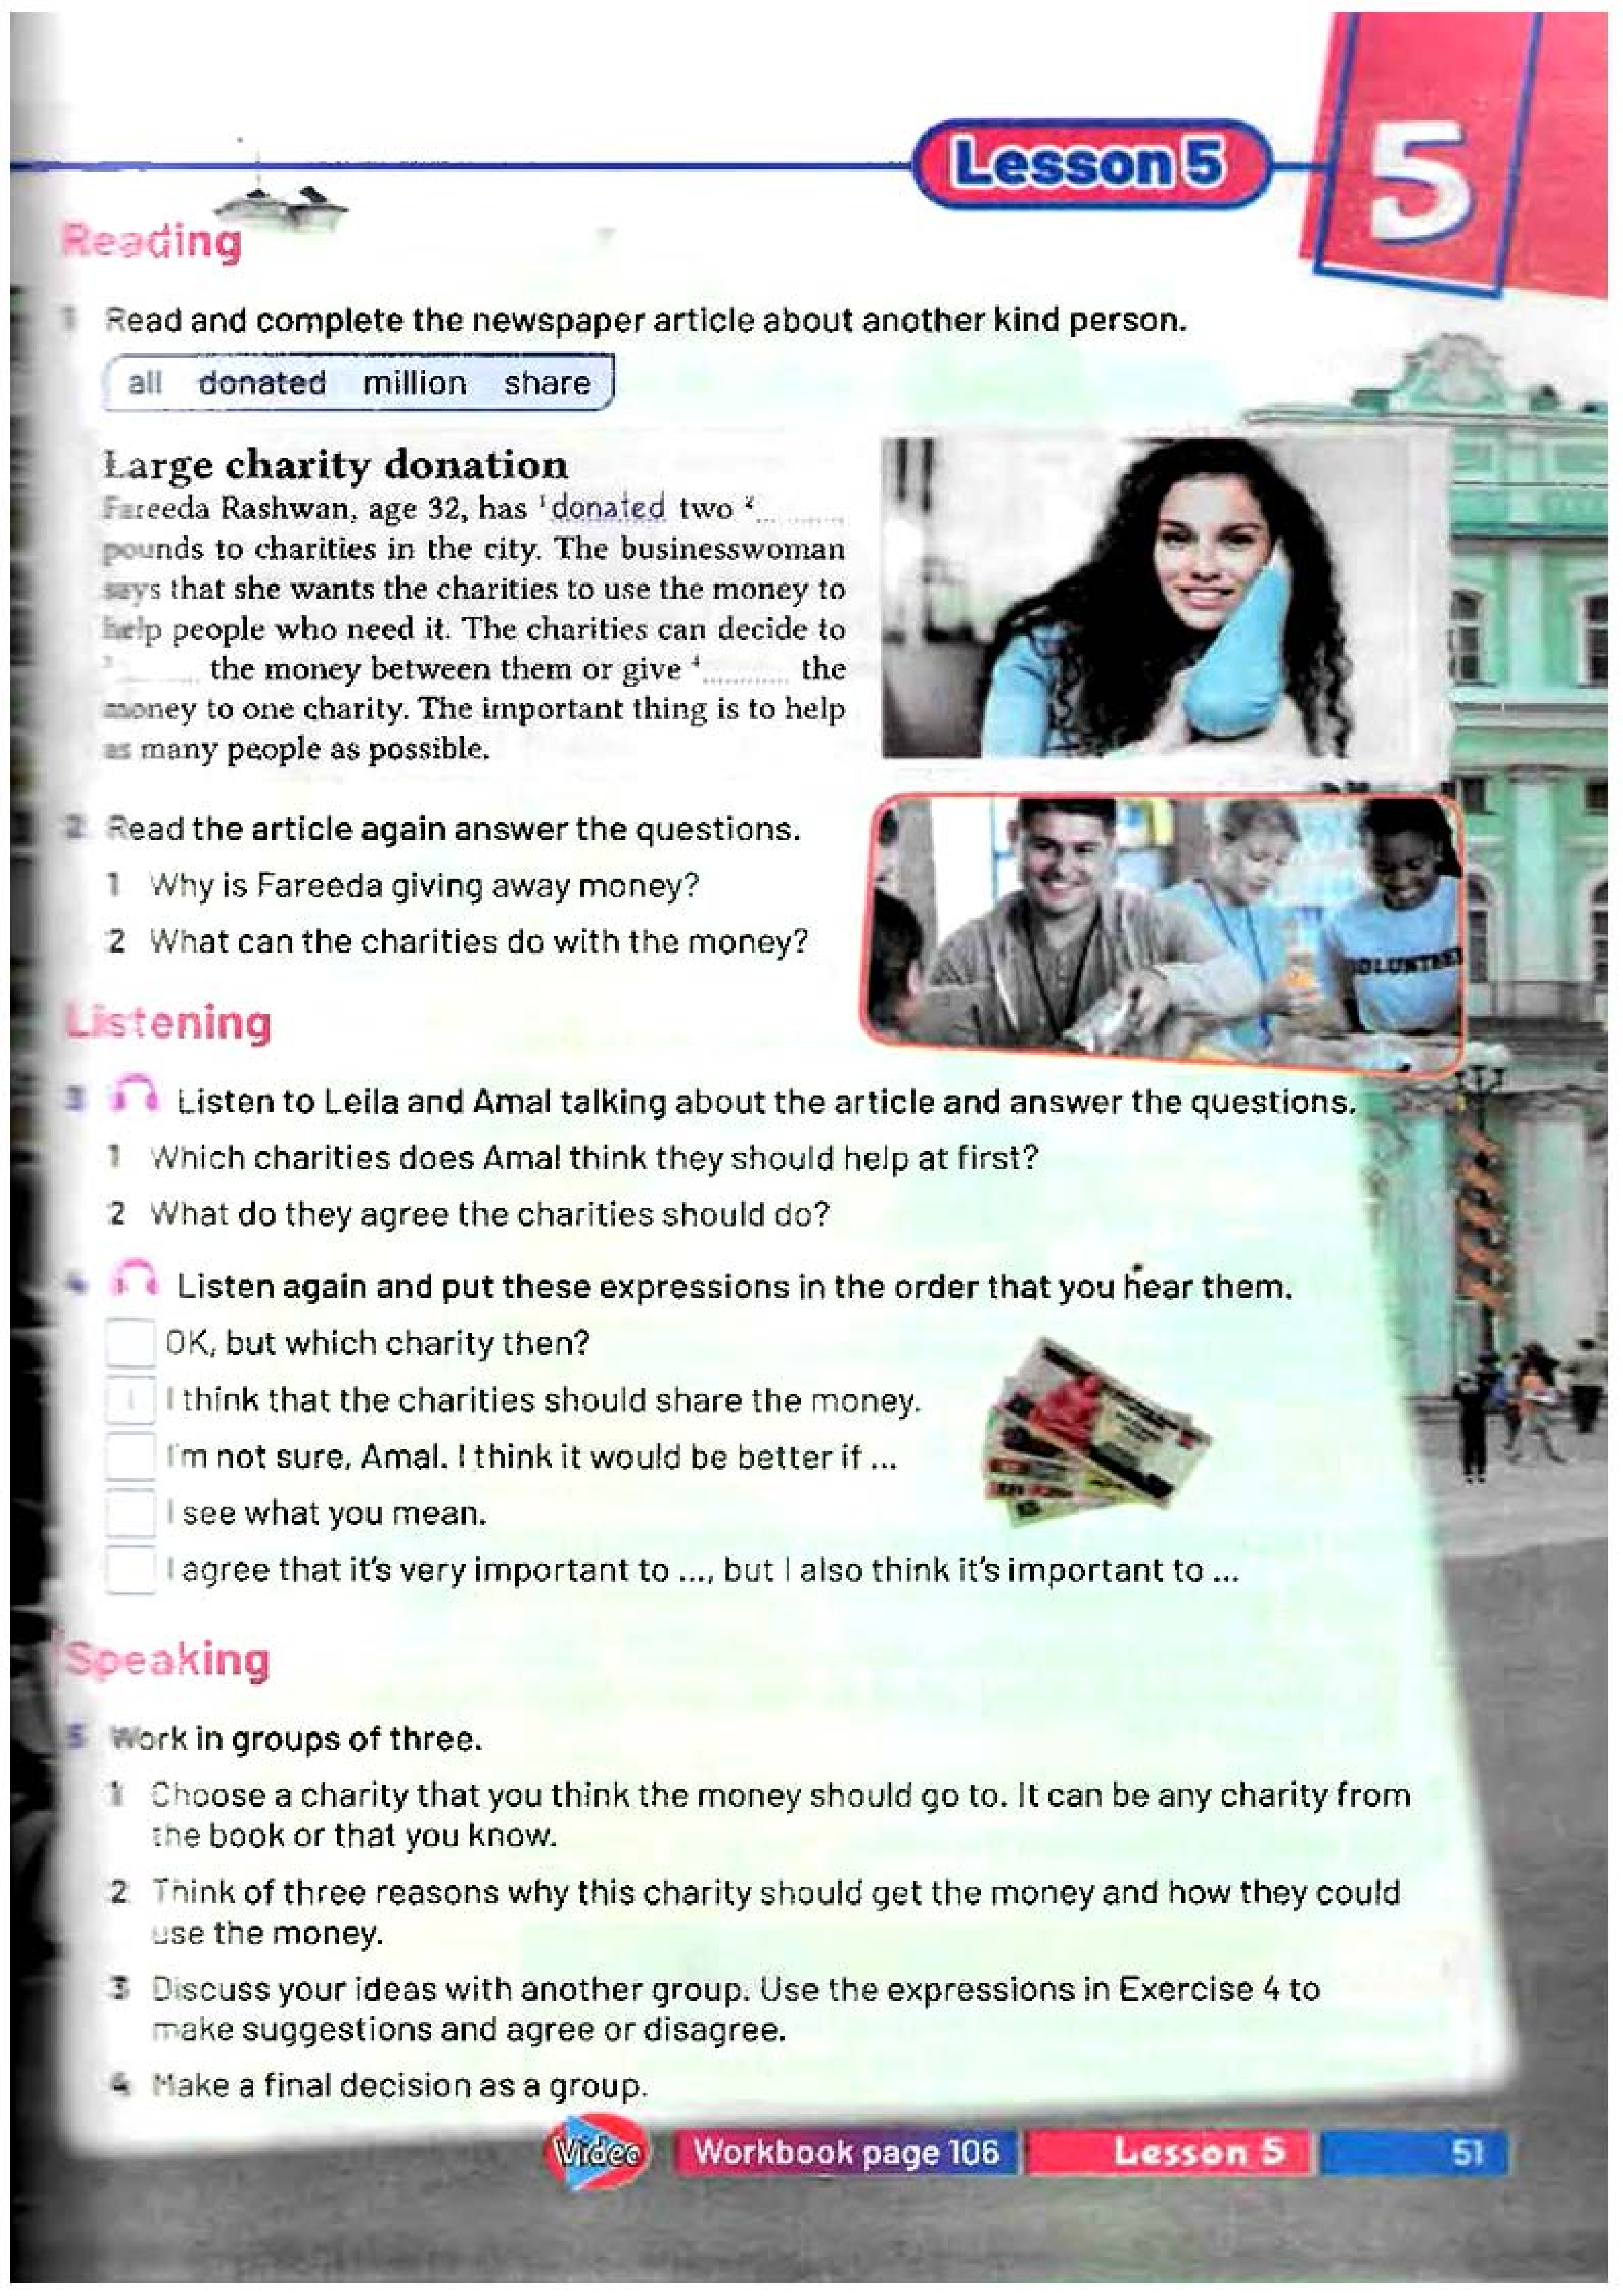 Lesson 5
5
Reading
1 Read and complete the newspaper article about another kind person.
all donated million share
Large charity donation
Fareeda Rashwan, age 32, has 1 donated two 2 ..........
pounds to charities in the city. The businesswoman
says that she wants the charities to use the money to
help people who need it. The charities can decide to
3 .......... the money between them or give 4 .......... the
money to one charity. The important thing is to help
as many people as possible.
2 Read the article again answer the questions.
1 Why is Fareeda giving away money?
2 What can the charities do with the money?
VOLUNTEER
Listening
3 Listen to Leila and Amal talking about the article and answer the questions.
1 Which charities does Amal think they should help at first?
2 What do they agree the charities should do?
4 Listen again and put these expressions in the order that you hear them.
OK, but which charity then?
1 I think that the charities should share the money.
I'm not sure, Amal. I think it would be better if ...
I see what you mean.
I agree that it's very important to ..., but I also think it's important to ...
Speaking
5 Work in groups of three.
1 Choose a charity that you think the money should go to. It can be any charity from
the book or that you know.
2 Think of three reasons why this charity should get the money and how they could
use the money.
3 Discuss your ideas with another group. Use the expressions in Exercise 4 to
make suggestions and agree or disagree.
4 Make a final decision as a group.
Video Workbook page 106 Lesson 5 51